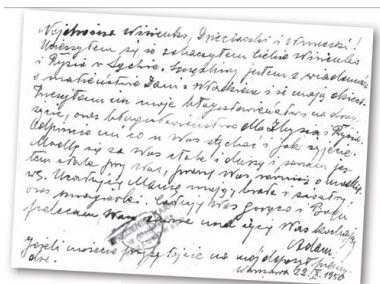 Najdroższa Wisieńko, Dzieciaczki i Wnuczki!
Ucieszyłem się że zobaczyłem Ciebie Wisieńko
i Rysia w Szczęśliwy jestem z wiadomości
o małżeństwie Dans i że mają dzieci.
Przesyłam im moje błogosławieństwo na drogę
życia, oraz błogosławieństwo
Odpiszcie mi co u Was słychać i jak żyjecie.
Modlę się za was stale i duszą i sercem jes-
tem stale przy Was, proszę Was również o modlit-
wę. Uściskajcie Mamę moją i brata i siostry
oraz Całuję Was gorąco i Bogu
polecam Wasz zawsze was kochający
Adam
Jeżeli możecie przysyłajcie na mój depozyt
Warszawa 22.X.1950